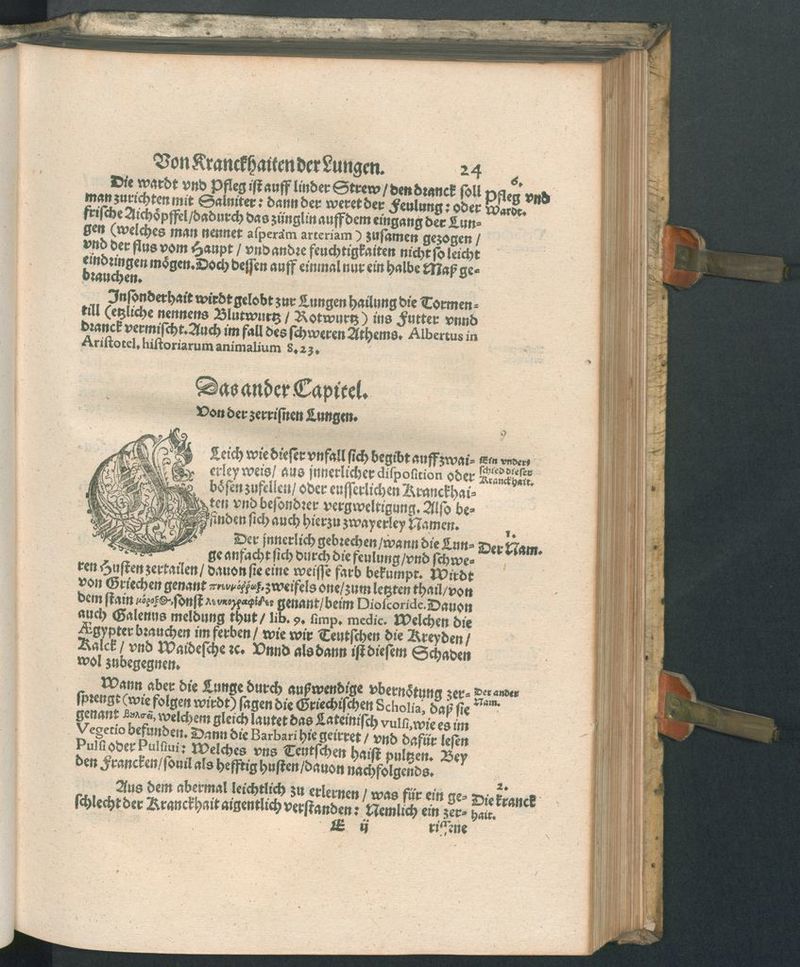 Von Kranckhaiten der Lungen. 24
Die wardt vnd Pfleg ist auff linder Strew / den dranck soll
man zurichten mit Salniter: dann der weret der Feulung: oder
frische Aichöpffel / dadurch das zünglin auff dem eingang der Lun-
gen (welches man nennet asperam arteriam) zusamen gezogen /
vnd der flus vom Haupt / vnd andre feuchtigkaiten nicht so leicht
eindringen mögen. Doch dessen auff einmal nur ein halbe Maß ge-
brauchen.
6.
Pfleg vnd
Wardt.
Insonderhait wirdt gelobt zur Lungen hailung die Tormen-
till (etzliche nennens Blutwurtz / Rotwurtz) ins Futter vnnd
dranck vermischt. Auch im fall des schweren Athems. Albertus in
Aristotel. historiarum animalium 8. 23.
Das ander Capitel.
Von der zerrisnen Lungen.
GLeich wie dieser vnfall sich begibt auff zwai-
erley weis / aus jnnerlicher disposition oder
bösen zufellen / oder eusserlichen Kranckhai-
ten vnd besondrer vergweltigung. Also be-
finden sich auch hierzu zwayerley Namen.
Ein vnder-
schied dieser
Kranckhait.
Der jnnerlich gebrechen / wann die Lun-
ge anfacht sich durch die feulung / vnd schwe-
ren Husten zertailen / dauon sie eine weisse farb bekumpt. Wirdt
von Griechen genant zweifels one / zum letzten thail / von
dem stain sonst genant / beim Dioscoride. Dauon
auch Galenus meldung thut / lib. 9. simp. medic. Welchen die
Ægypter brauchen im ferben / wie wir Teutschen die Kreyden /
Kalck / vnd Waidesche ꝛc. Vnnd als dann ist diesem Schaden
wol zubegegnen.
1.
Der Nam.
Wann aber die Lunge durch außwendige vbernötung zer-
sprengt (wie folgen wirdt) sagen die Griechischen Scholia, daß sie
genant welchem gleich lautet das Lateinisch vulsi, wie es im
Vegetio befunden. Dann die Barbari hie geirret / vnd dafür lesen
Pulsi oder Pulsiui: Welches vns Teutschen haist pultzen. Bey
den Francken / souil als hefftig husten / dauon nachfolgends.
Der ander
Nam.
Aus dem abermal leichtlich zu erlernen / was für ein ge-
schlecht der Kranckhait aigentlich verstanden: Nemlich ein zer-
2.
Die kranck
hait.
E ij rissene